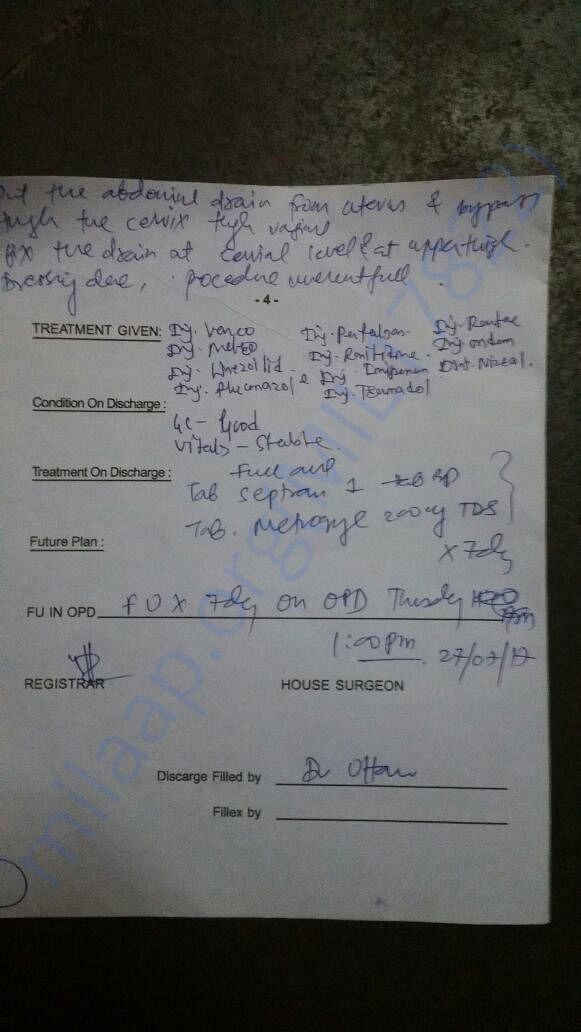 Put the abdominal drain from uterus & bypass
through the cervix through vagina
Fix the drain at cervial level & at upper thigh.
Dressing done, procedure uneventfull.
- 4 -
TREATMENT GIVEN: Inj. Vanco Inj. Inj. Rantac
Inj. Metro Inj. Ranitidine. Inj. ondem
Inj. Linezolid Inj. Imipenem
Inj. fluconazole Inj. Tramadol
Condition On Discharge :
GC - Good
Vitals - Stable.
Treatment On Discharge : Full
Tab Septran 1 BD
Tab. Metrogyl 200mg TDS
Future Plan : x 7dy
FU IN OPD FU X 7dy on OPD
1:00 pm 27/07/17
REGISTRAR HOUSE SURGEON
Discarge Filled by Dr
Fillex by
milaap.org